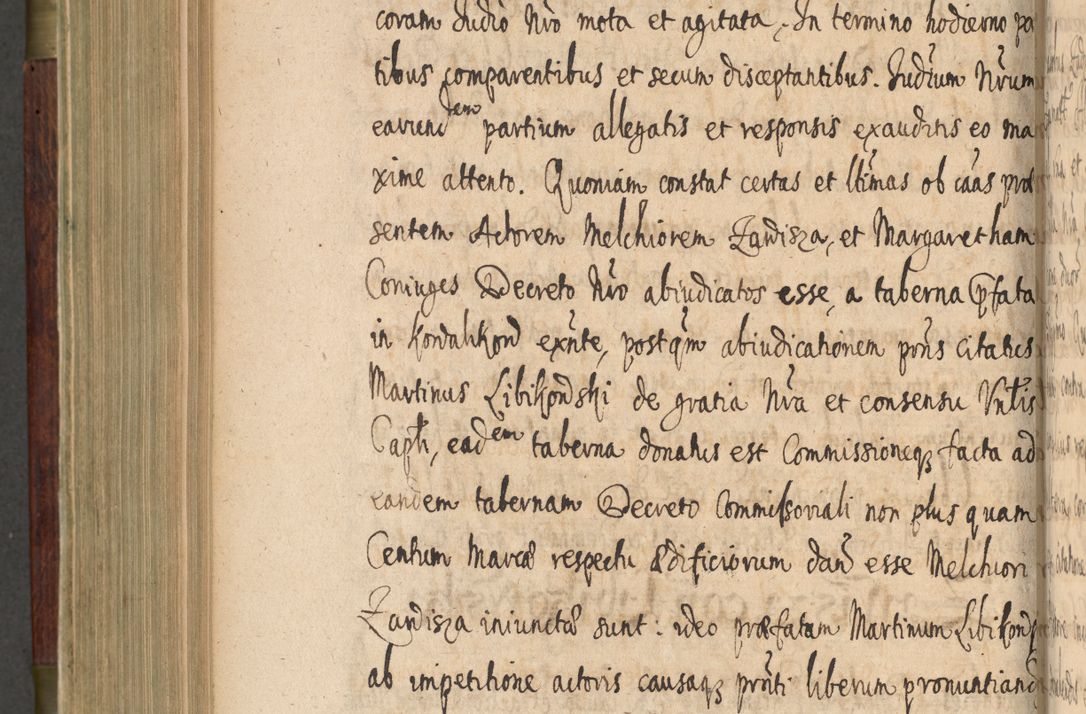 coram Judiō Nrō mota et agitata, In termino hodierno par
tibus comparentibus et secum disceptantibus. Judīum Nrūm
earundem partium allegatis et responsis exauditis eo ma
xime attento. Quoniam constat certas et ltīmas ob cāās præ
sentem Actorem Melchiorem Zawisza, et Margaretham
Coniuges Decreto Nrō abiudicatos esse, a taberna pfata
in Kowalikow exnte, postqm abiudicationem prns citatus
Martinus Libikowski de gratia Nrā et consensu Vntis
Caplī, eadem taberna donatus est Commissioneqꝫ facta ad
eandem tabernam Decreto Commissoriali non plus quam
Centum Marcæ respectu ædificiorum dand esse Melchiori
Zawisza iniunctæ sunt: ideo præfatam Martinum Libikowsk
ab impetitione actoris causaqꝫ prnti liberum pronuntiand